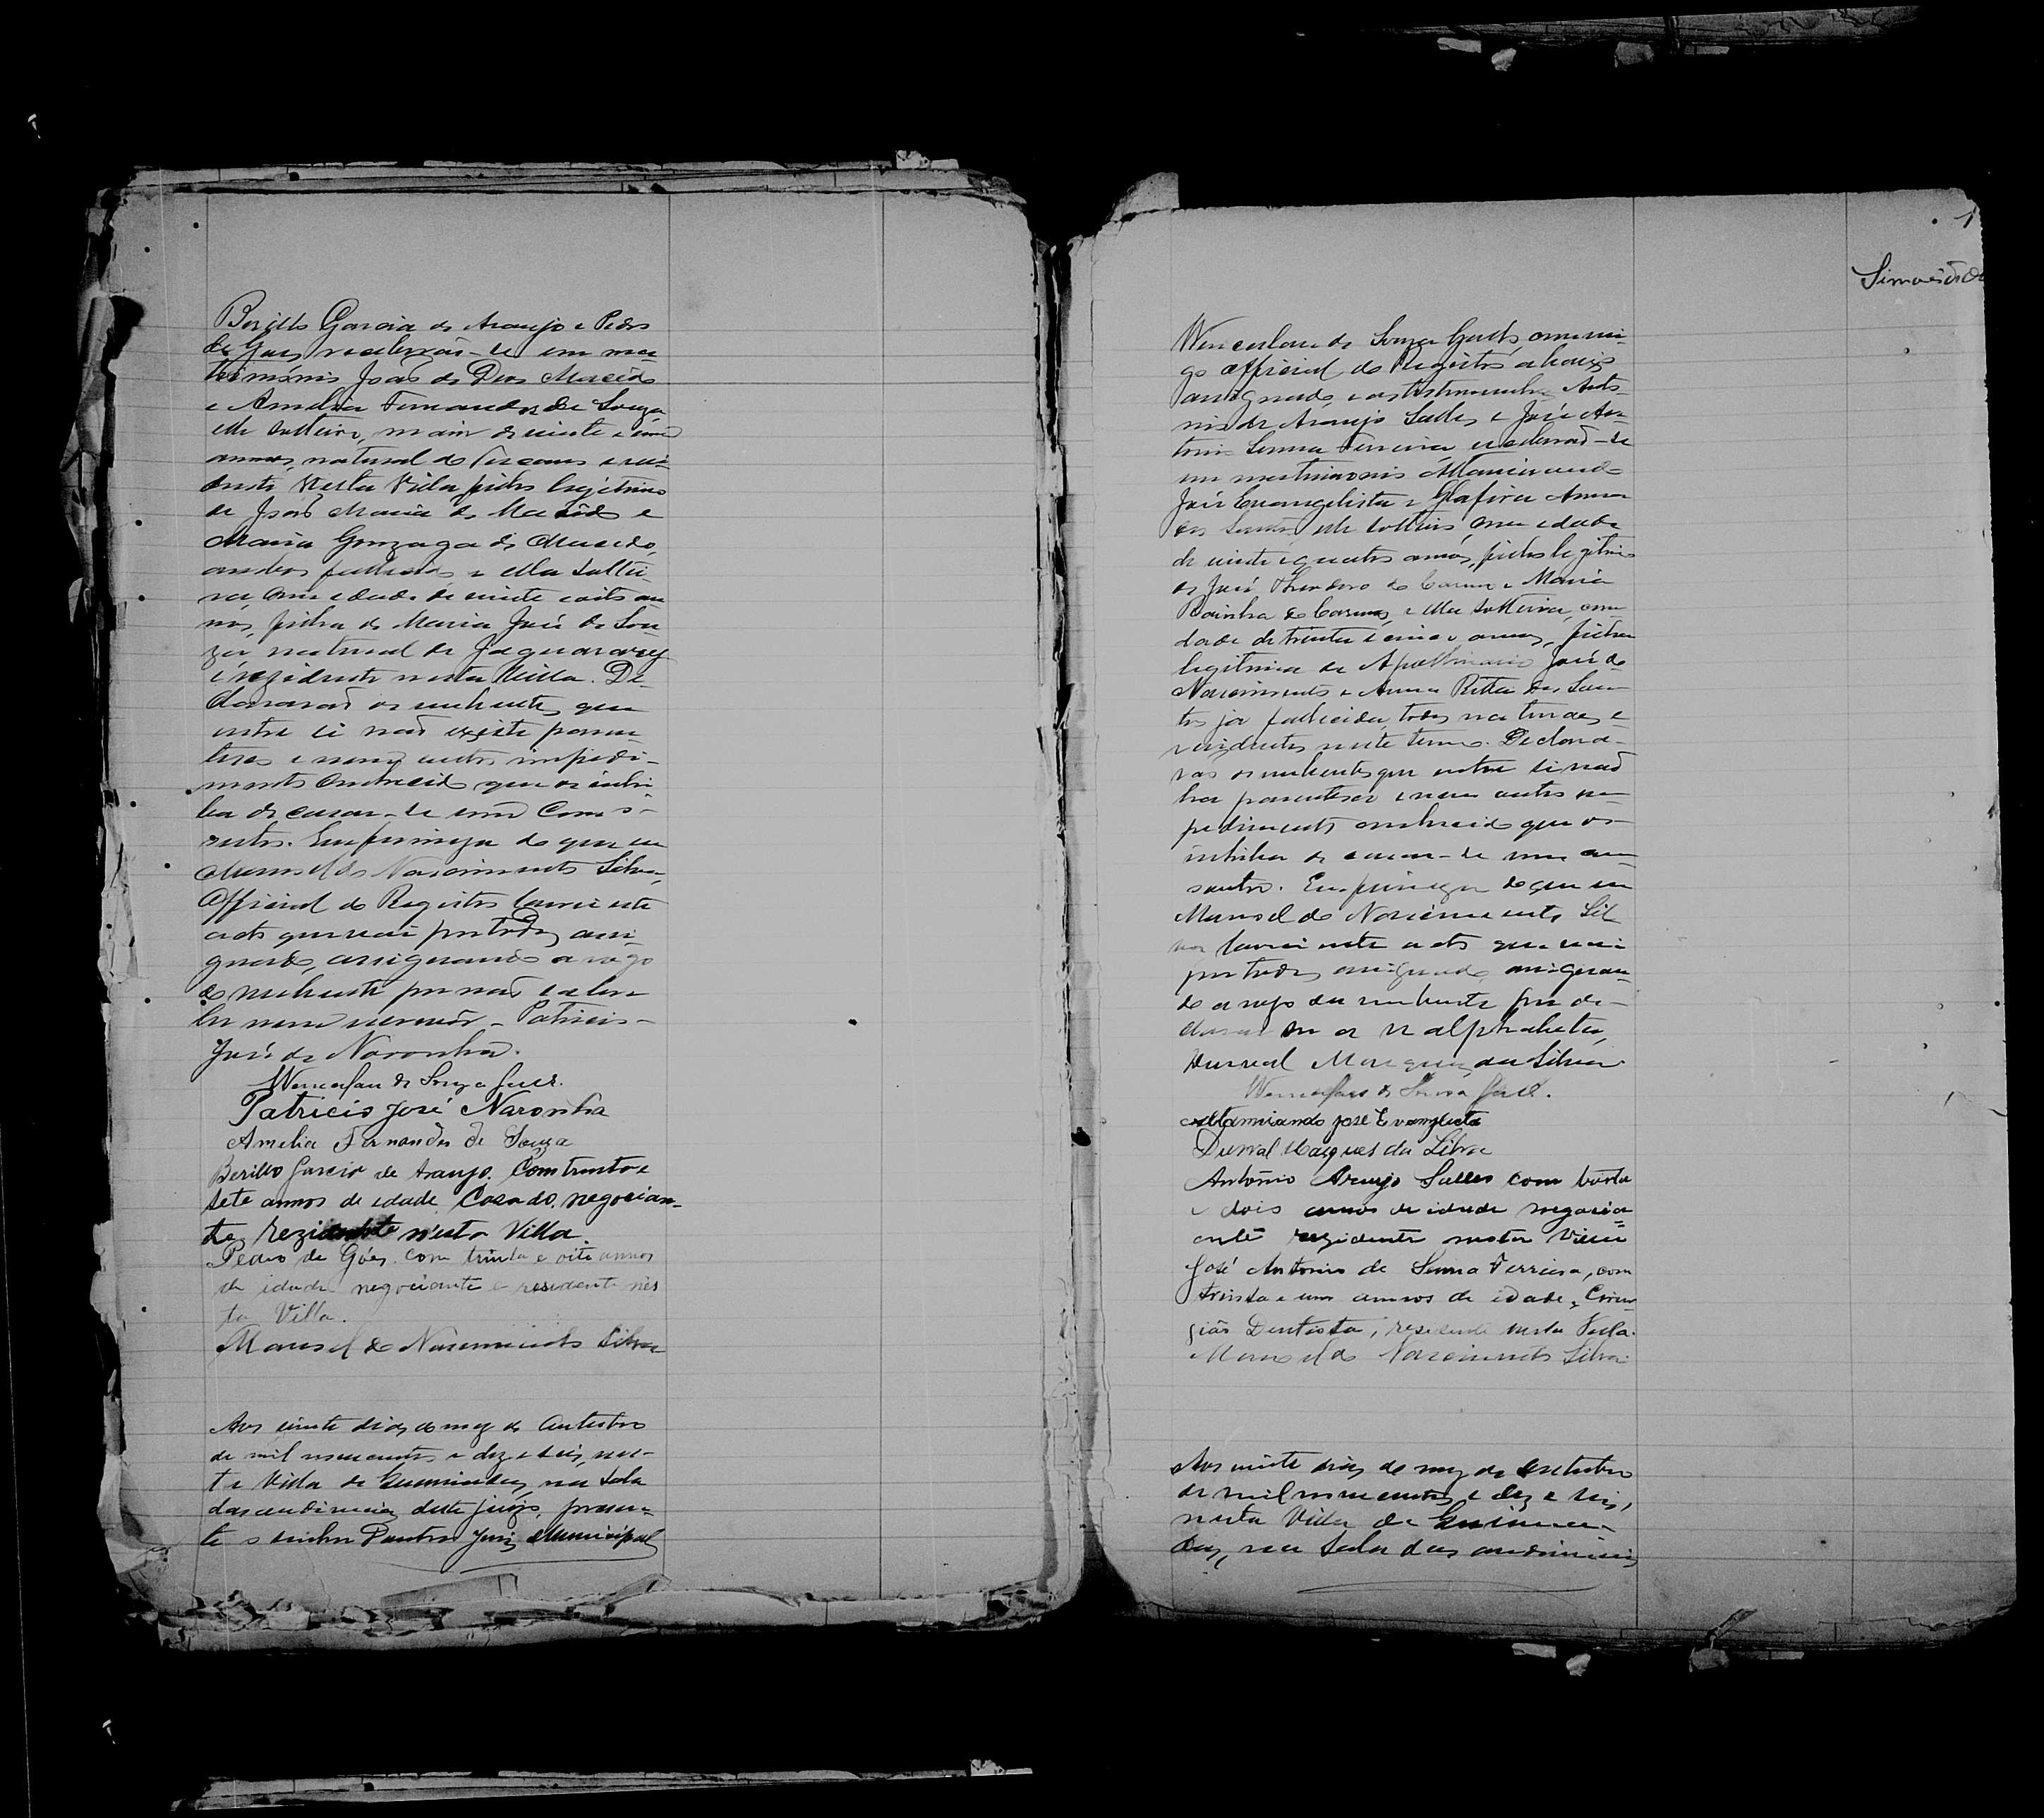 Berillo Garcia de Araujo e Pedro
de Góes receberão-se em ma-
trimónio João de Deos Macêdo
e Amelia Fernandes de Souza
elle solteiro, maior de vinte e um
annos, natural de e resi-
dente nesta Villa filho legitimo
de João Maria de Macêdo e
Maria Gonzaga de Macedo,
ambos fallecidos, e ella soltei-
ra, com edade de vinte e oito an-
nos, filha de Maria José de Sou-
za, natural de Jaguarary
e rezidente nesta Villa. De-
clararão os nubentes que
entre si não existe paren-
tesco e nem outro impedi-
mento conhecido que os inhi-
ba de casar-se um com o-
outro. Em firmeza do que eu
Manoel do Nascimento Silva,
Official do Registro lavrei este
acto que vai por todos assi-
gnado, assignando a rogo
do nubente por não saber
ler nem escrever - Patricio-
José de Noronha.
Wenceslau de Souza Guedes.
Patricio José Naronha
Amelia Fernandes de Souza
Berillo Garcia de Araujo, Com trinta e
sete annos de idade Casado, negocian-
te, rezidente nesta Villa.
Pedro de Góes com trinta e oito annos
de idade negociante e residente nes
ta Villa.
Manoel do Nascimento Silva
Aos vinte dias do mez de Outubro
de mil novecentos e dez e seis, nes-
ta Villa de na Sala
das audiencias deste juizo, presen-
te o senhor Doutor Juiz Municipal
Simões de
Wenceslau de Souza Guedes, commi-
go official do Registro abaixo
assignado, e as testemunhas Anto-
nio de Araujo Salles e José An-
tonio Senna Ferreira receberão-se
em matrimonio Altamirando
José Evangelista e Glafira Anna
dos Santos, elle solteiro, com edade
de vinte e quatro annos, filho legitimo
de José Theodoro do Carmo e Maria
Rainha do Carmo, e ella solteira, com
dade de trinta e cinco annos, filha
legitima de Apollinario José do
Nascimento e Anna Rita dos San-
tos já fallecida todos naturaes e
rezidentes neste termo. Declara-
rão os nubentes que entre si não
ha parentesco e nem outro im-
pedimento conhecido que os
inhiba de casar-se um com
o outro. Em firmeza do que eu
Manoel do Nascimento Sil
va lavrei este acto que vai
por todos assignado, assignan-
do a rogo da nubente por de-
clarar ser analphabeta,
Durval Marques da Silva
Wenceslau de Souza Guedes.
Altamirando José Evangelista
Durval Marques da Silva
Antônio Araujo Salles com trinta
e dois annos de idade negoci-
ante rezidente nesta Villa
José Antonio de Senna Ferreira, com
trinta e um annos de idade, Cirur-
gião Dentista, residente nesta Villa.
Manoel do Nascimento Silva
Aos vinte dias do mez de Outubro
de mil novecentos e dez e seis,
nesta Villa de
na Sala das audiencias